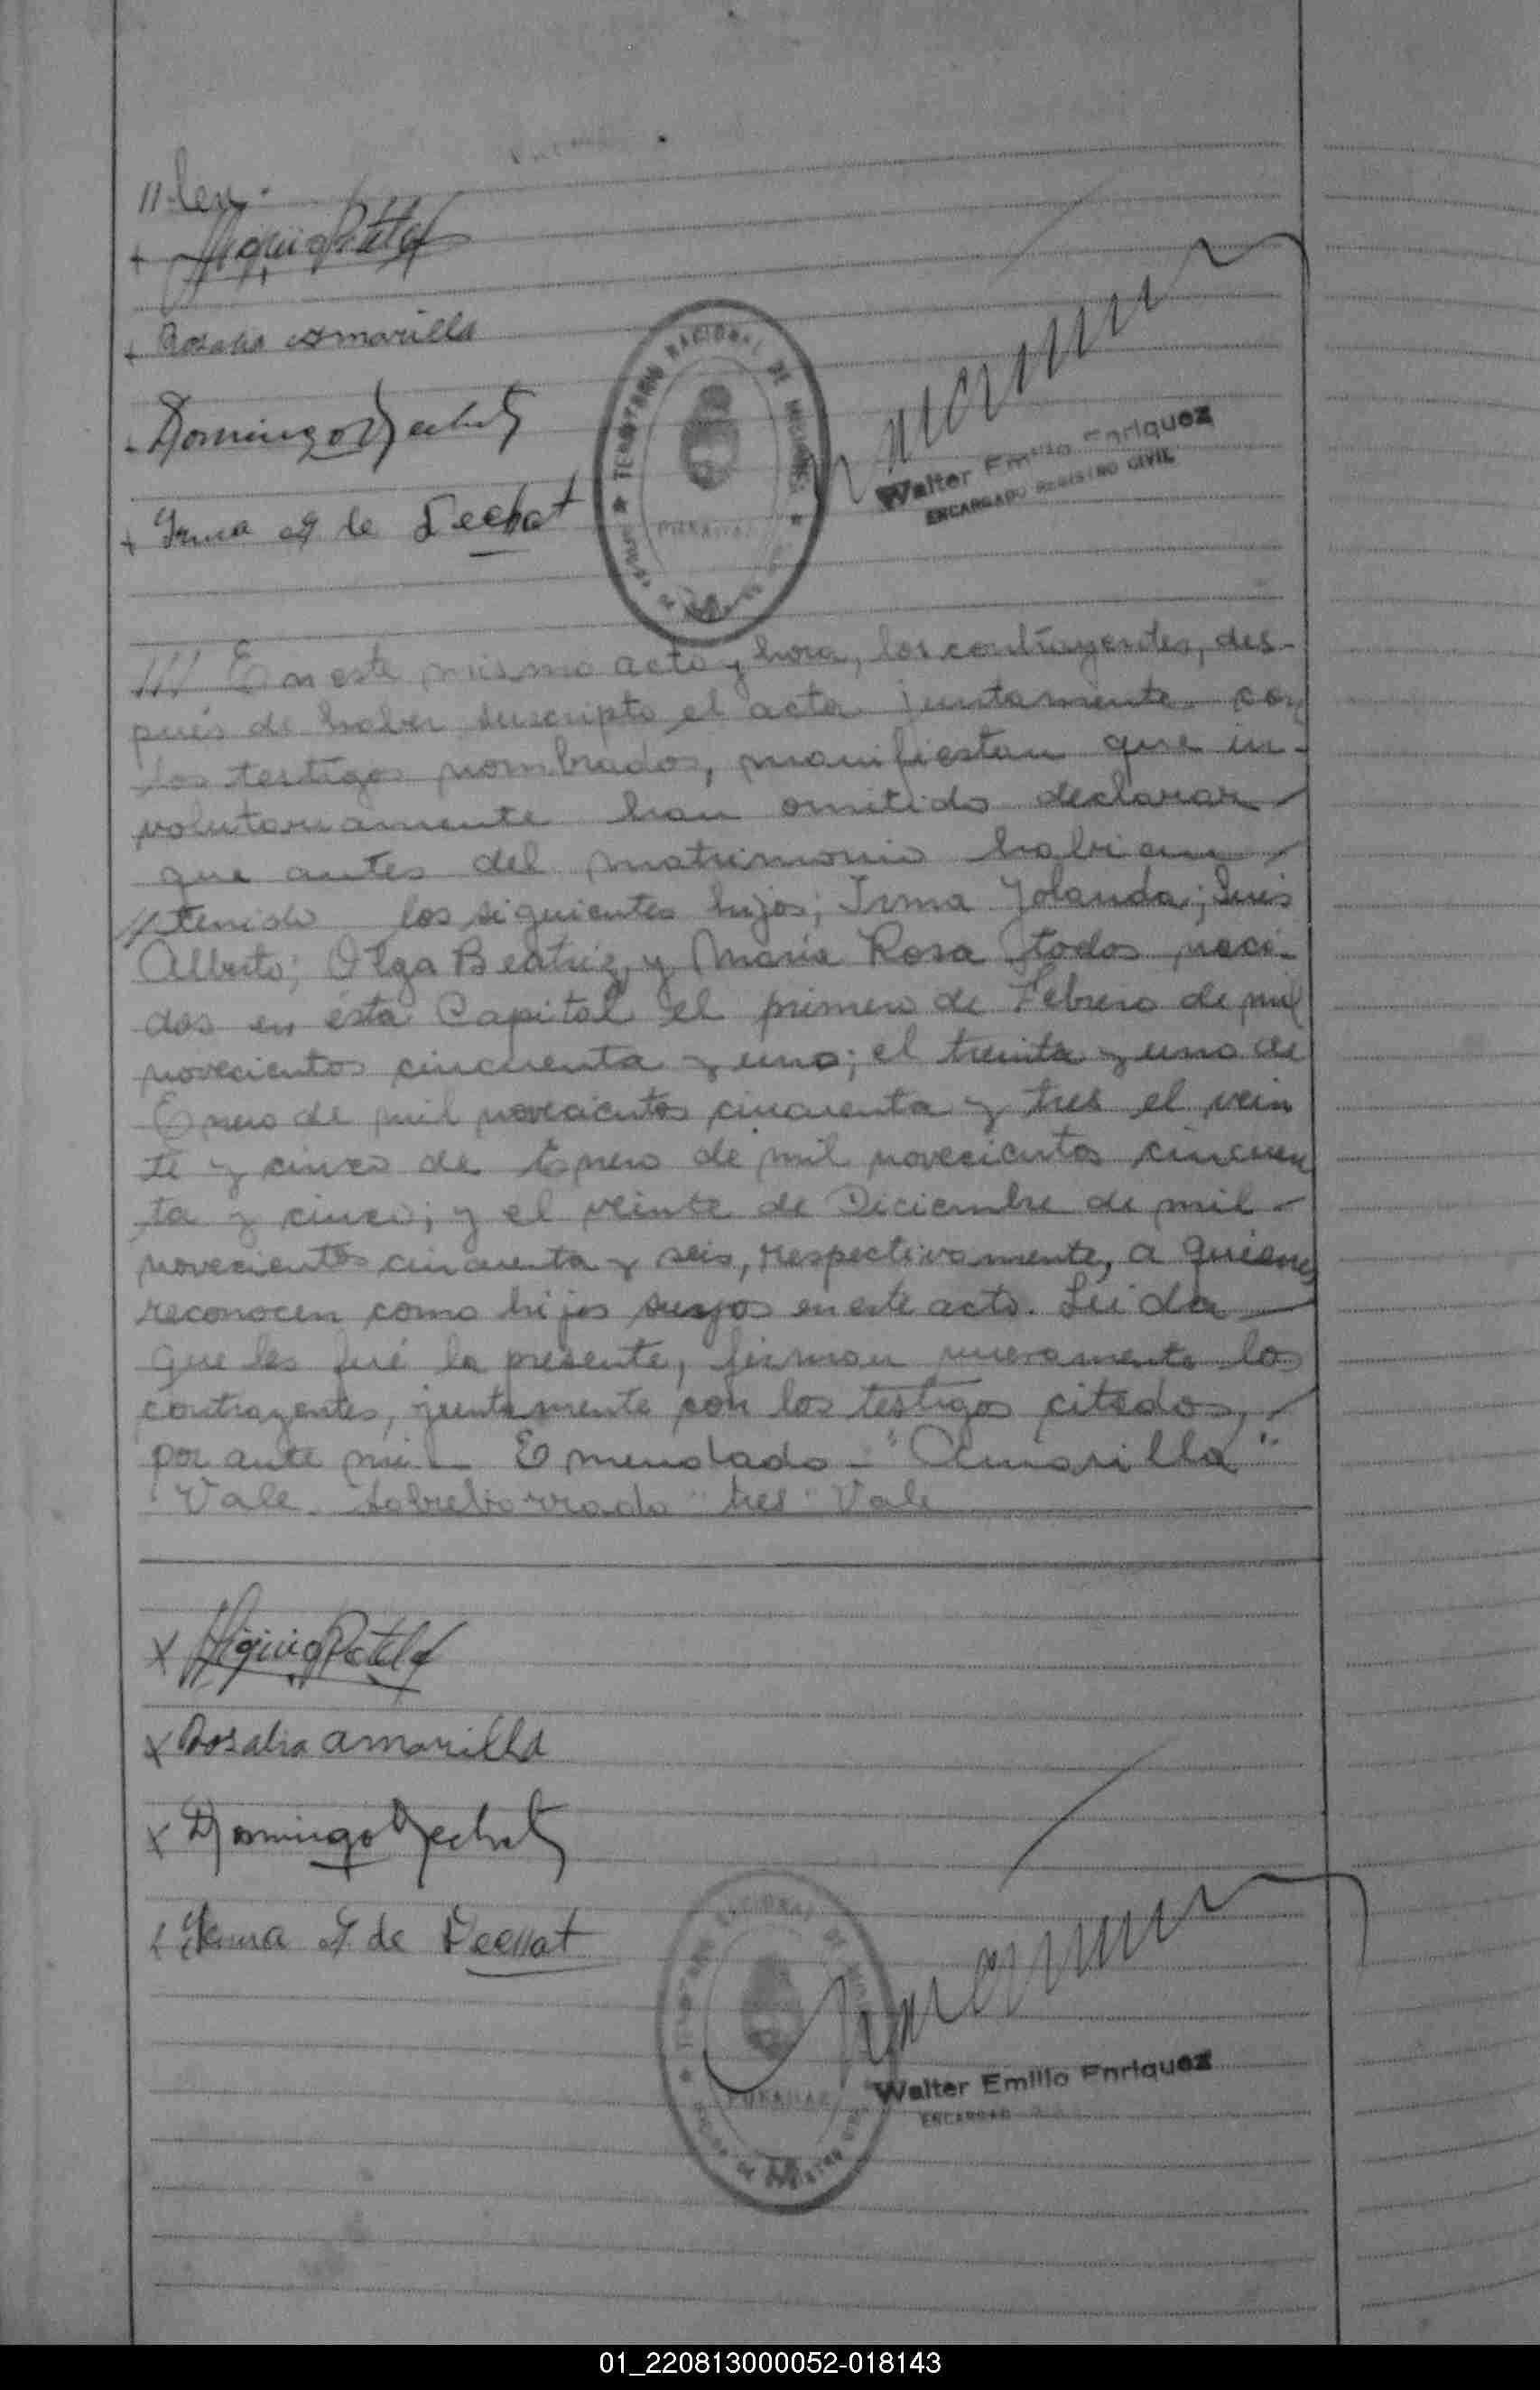 "len.
Rosalia Amarilla
Domingo Dechat
Irma G de Dechat
TERRITORIO NACIONAL DE MISIONES
Walter Emilio Enriquez
ENCARGADO REGISTRO CIVIL
/// En este mismo acto y hora, los contrayentes, des-
pués de haber suscripto el acta juntamente con
los testigos nombrados, manifiestan que in-
volutariamente han omitido declarar
que antes del matrimonio habian
tenido los siguientes hijos; Irma Yolanda; Luis
Alberto; Olga Beatriz y Maria Rosa todos naci-
dos en ésta Capital el primero de Febrero de mil
novecientos cincuenta y uno; el treinta y uno de
Enero de mil novecientos cincuenta y tres el vein
te y cinco de Enero de mil novecientos cincuen
ta y cinco; y el veinte de Diciembre de mil
novecientos cincuenta y seis, respectivamente, a quienes
reconocen como hijos suyos en este acto. Leida
que les fué la presente, firman nuevamente los
contrayentes, juntamente con los testigos citados,
por ante mi - Emendado - "Amarilla"
Vale. Sobreborrado "tres" Vale
Higinio
Rosalia amarilla
Domingo Dechat
Irma G de Dechat
Walter Emilio Enriquez
ENCARGADO
01_220813000052-018143